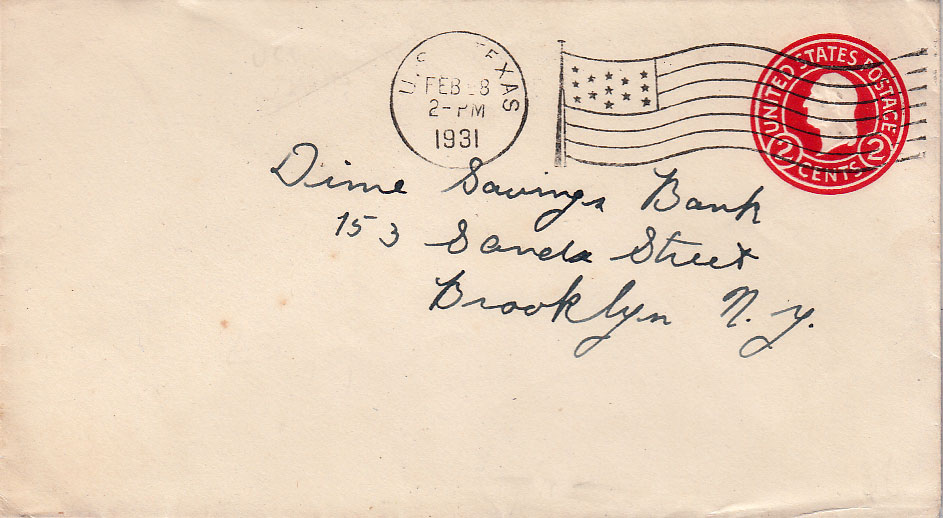 TEXAS
FEB 28
2-PM
1931
UNITED STATES POSTAGE
2 CENTS 2
Dime Savings Bank
153 Sands Street
Brooklyn N.Y.